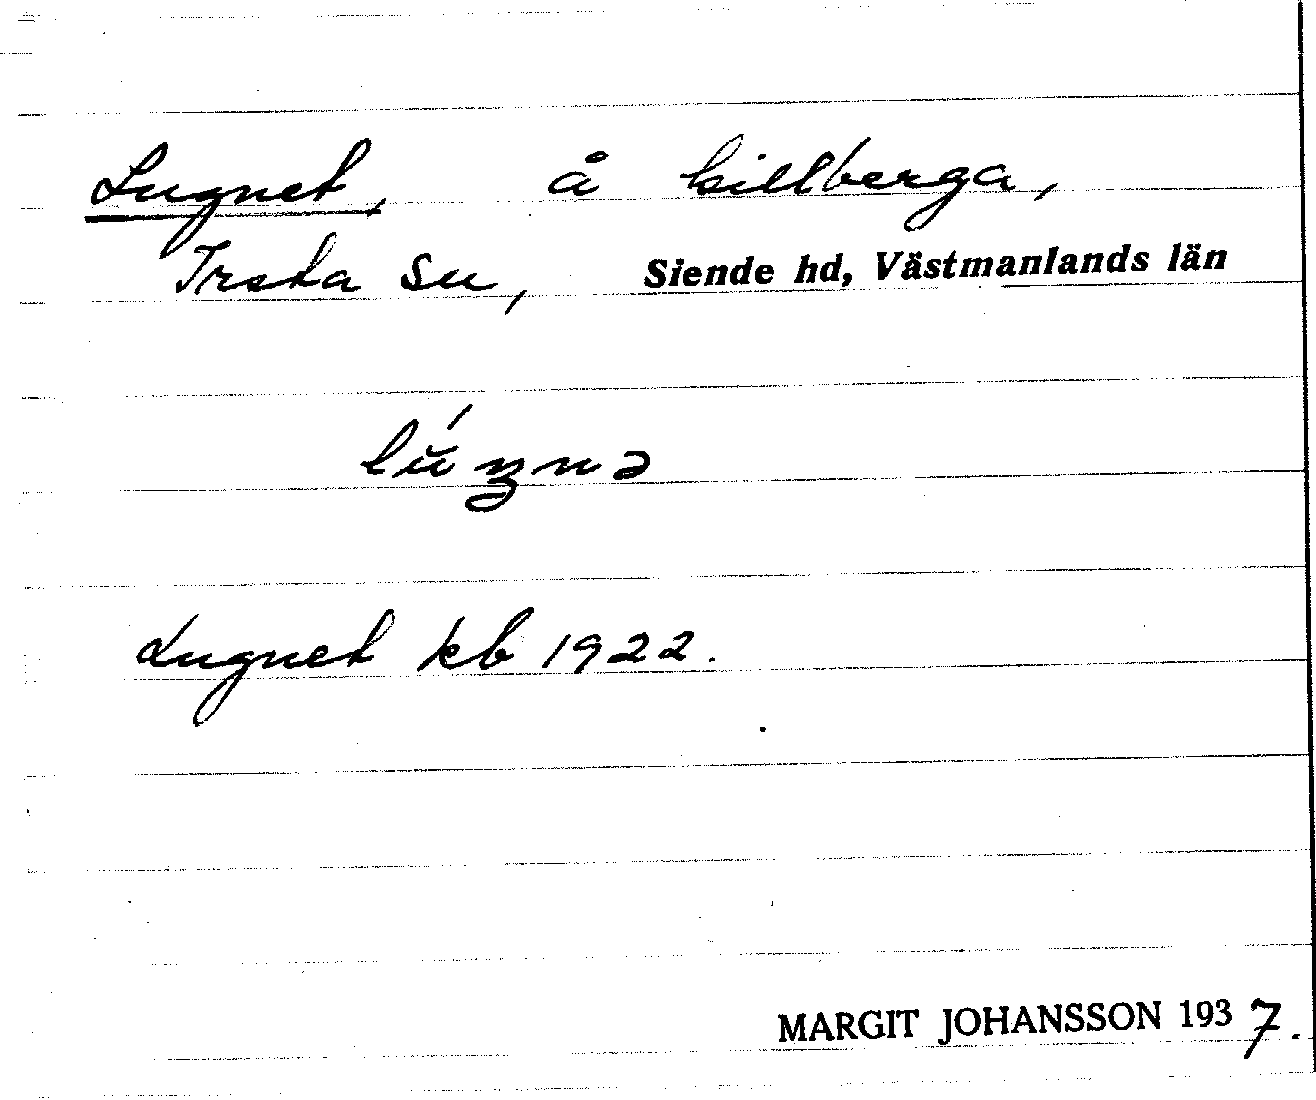 Lugnet, å Lillberga,
Irsta sn, Siende hd, Västmanlands län
Lugnet kb 1922.
MARGIT JOHANSSON 1937.